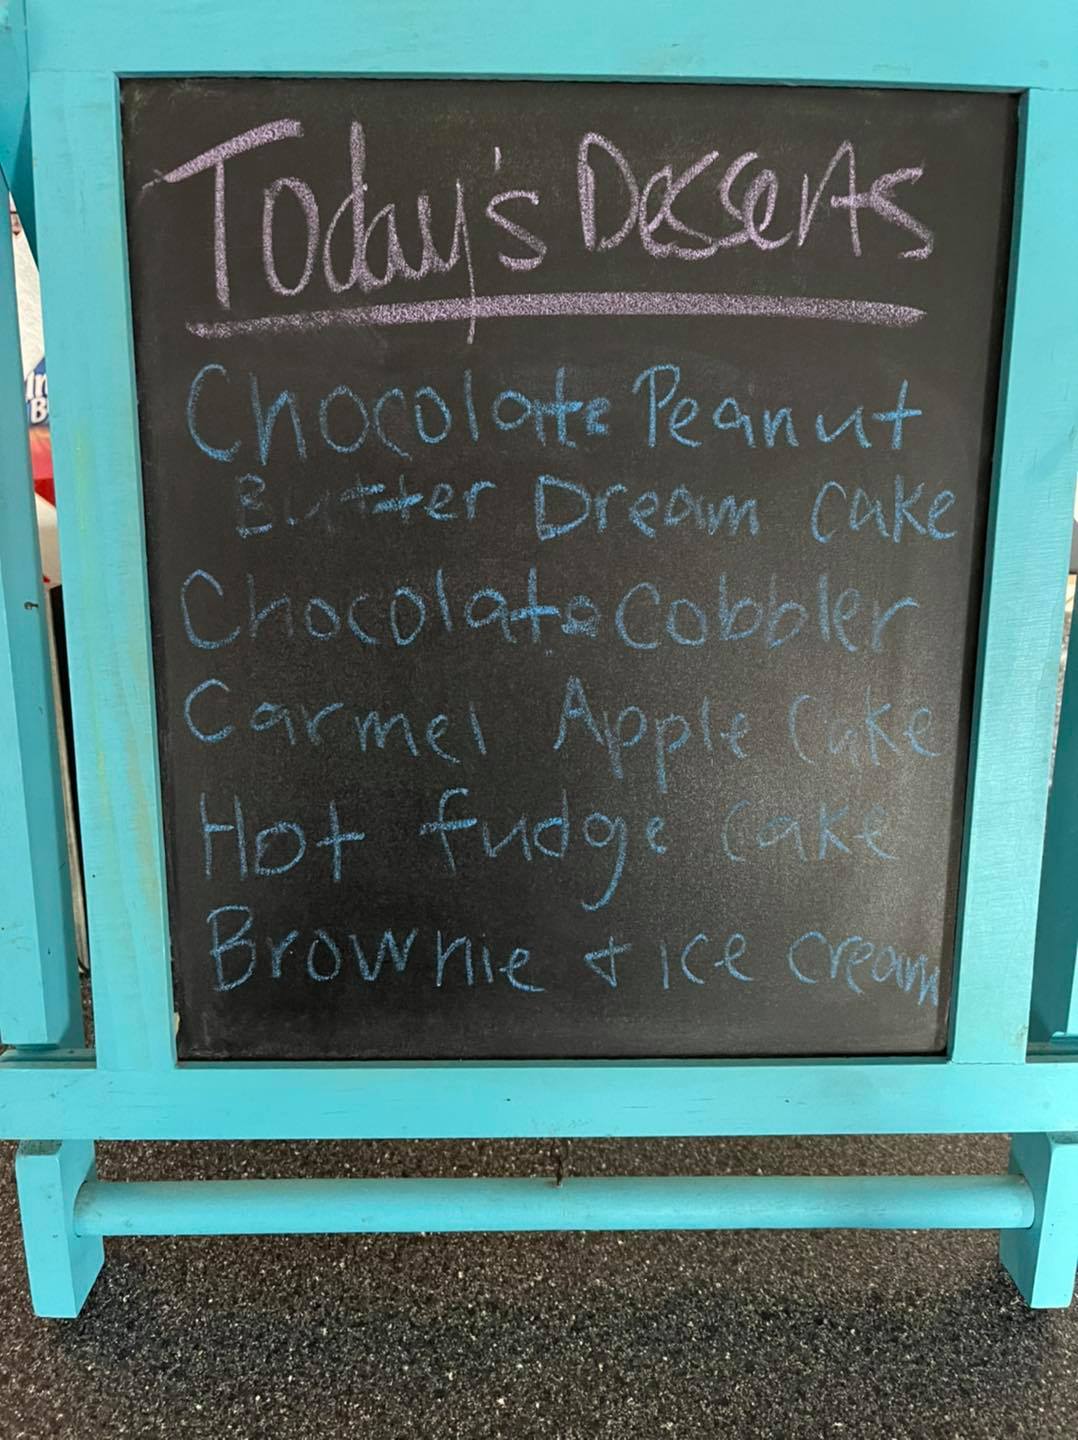 Today's Desserts
Chocolate Peanut
Butter Dream Cake
Chocolate Cobbler
Carmel Apple Cake
Hot fudge Cake
Brownie + ice cream